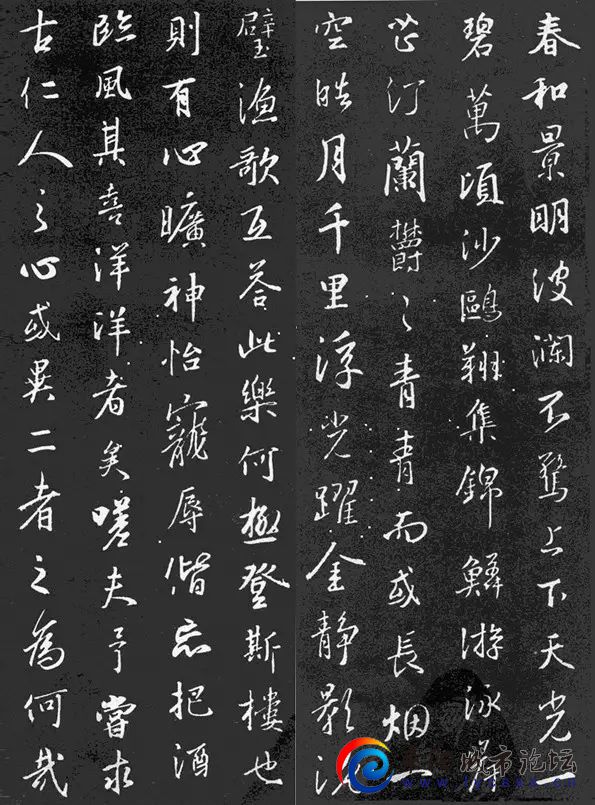 春和景明波瀾不驚上下天光一
碧萬頃沙鷗翔集錦鱗游泳岸
芷汀蘭鬱々青青而或長烟一
空皓月千里浮光躍金静影沉
璧漁歌互答此樂何極登斯樓也
則有心曠神怡寵辱偕忘把酒
臨風其喜洋洋者矣嗟夫予嘗求
古仁人之心或異二者之為何哉
城市论坛